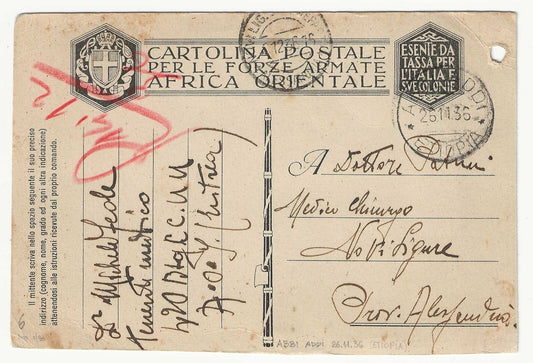 CARTOLINA POSTALE
PER LE FORZE ARMATE
AFRICA ORIENTALE
ESENTE DA
TASSA PER
L'ITALIA E
SVE COLONIE
26.11.36
A Dottore
Medico Chirurgo
Novi Ligure
Prov. Alessandria
Il mittente scriva nello spazio seguente il suo preciso
indirizzo (cognome, nome, grado ed ogni altra indicazione)
attenendosi alle istruzioni ricevute dal proprio comando.
Dr Michele
Tenente medico
Eritrea
6
ABBI ADDI 26.11.36 (ETIOPIA)